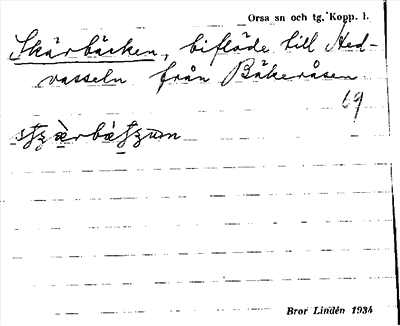 Orsa sn och tg, Kopp. l.
Skärbäcken, biflöde till Ned-
vasseln från Bäkeråsen
69
Bror Lindén 1934